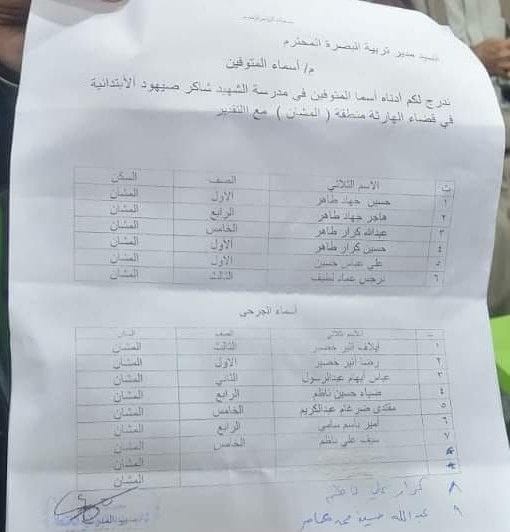 السيد مدير تربية البصرة المحترم
م/ أسماء المتوفين
ندرج لكم أدناه أسما المتوفين في مدرسة الشهيد شاكر صيهود الأبتدائية
في قضاء الهارثة منطقة ( المشان ) مع التقدير
ت الاسم الثلاثي الصف السكن
١ حسين جهاد طاهر الاول المشان
٢ هاجر جهاد طاهر الرابع المشان
٣ عبدالله كرار طاهر الخامس المشان
٤ حسين كرار طاهر الاول المشان
٥ علي عباس حسين الاول المشان
٦ نرجس عماد لطيف الثالث المشان
أسماء الجرحى
ت الاسم الثلاثي الصف السكن
١ ايلاف اثير خضير الثالث المشان
٢ رضا أثير خضير الاول المشان
٣ عباس ايهام عبدالرسول الثاني المشان
٤ ضياء حسين ناظم الرابع المشان
٥ مقتدى ضرغام عبدالكريم الخامس المشان
٦ أمير باسم سامي الرابع المشان
٧ سيف علي ناظم الخامس المشان
المشان
المشان
٨ كرار علي ناظم
٩ عبدالله حسين